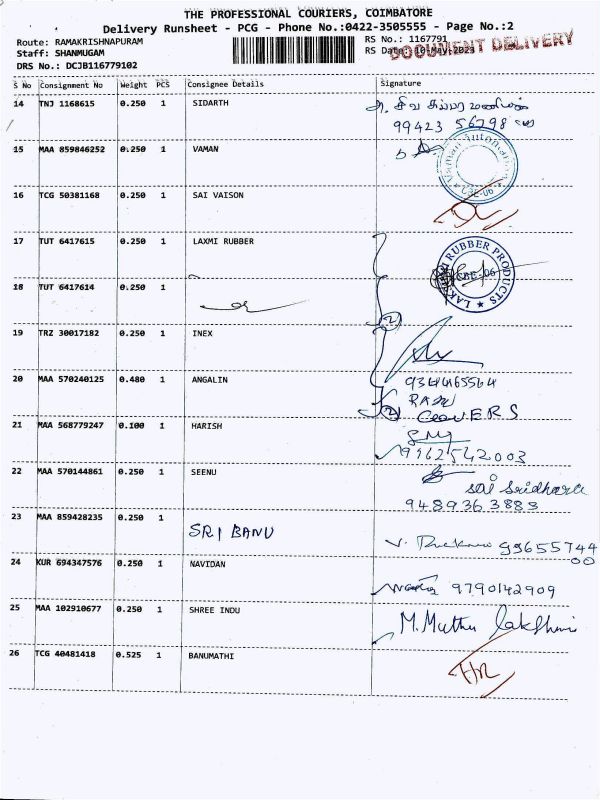 THE PROFESSIONAL COURIERS, COIMBATORE
Delivery Runsheet - PCG - Phone No.:0422-3505555 - Page No.:2
Route: RAMAKRISHNAPURAM
Staff: SHANMUGAM
DRS No.: DCJB116779102
RS No.: 1167791
RS Date: 10-May-2023
DOCUMENT DELIVERY
S No Consignment No Weight PCS Consignee Details Signature
14 TNJ 1168615 0.250 1 SIDARTH
99423 56798
15 MAA 859846252 0.250 1 VAMAN
Vaman Automation
CBE-06
16 TCG 50381168 0.250 1 SAI VAISON
17 TUT 6417615 0.250 1 LAXMI RUBBER
RUBBER PRODUCTS
CBE-06
18 TUT 6417614 0.250 1
2
19 TRZ 30017182 0.250 1 INEX
20 MAA 570240125 0.480 1 ANGALIN
2
21 MAA 568779247 0.100 1 HARISH
9962542003
22 MAA 570144861 0.250 1 SEENU
Sai Sridhara
9489363883
23 MAA 859428235 0.250 1
SRI BANU
24 KUR 694347576 0.250 1 NAVIDAN
9790142909
25 MAA 102910677 0.250 1 SHREE INDU
M. Muthu lakshmi
26 TCG 40481418 0.525 1 BANUMATHI